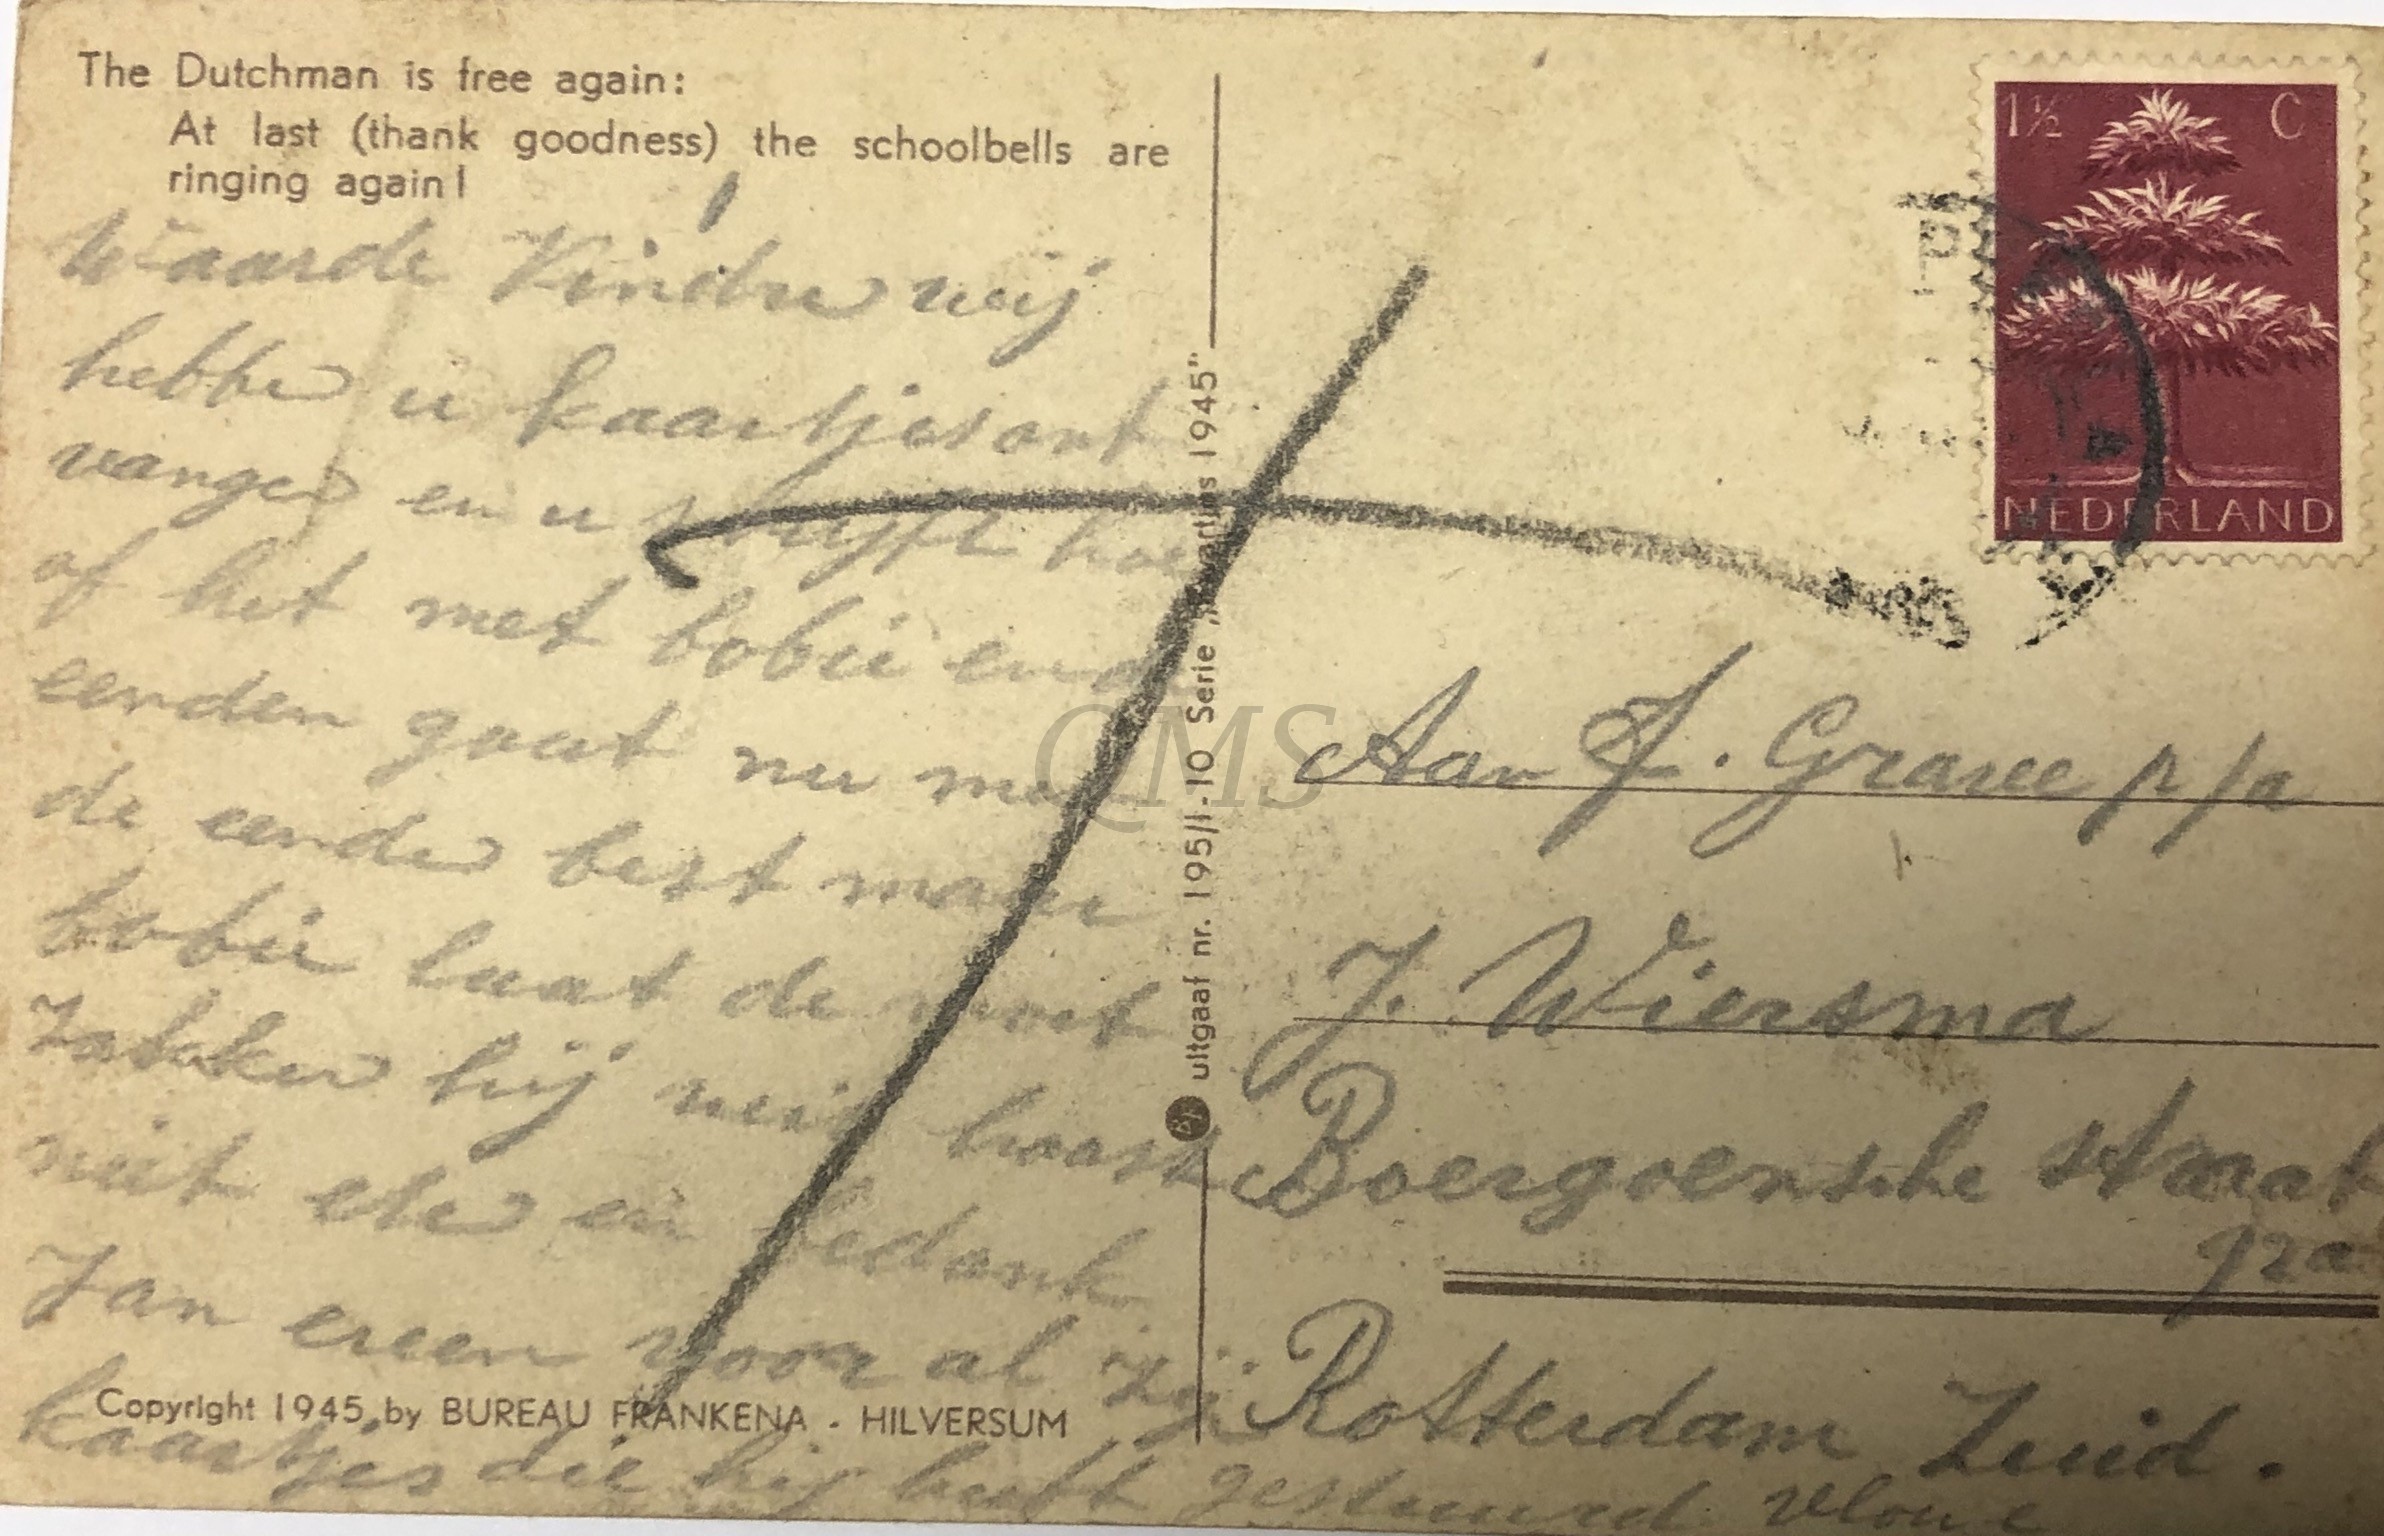 The Dutchman is free again:
At last (thank goodness) the schoolbells are
ringing again!
Waarde Kindre wij
hebbe u kaartjes ont
vange en u schrijft hoe
of het met bobie en de
eenden gaat nu met
de eende best maar
bobie laat de moet
zakken hij weit haast
niet ete en bedank
Jan ereen voor al zij
kaartjes die hij heeft gestuurd
Copyright 1945, by BUREAU FRANKENA - HILVERSUM
uitgaaf nr. 195/1-10 Serie „Kaartjes 1945"
1½ C
NEDERLAND
Aan J. Grave p/a
J. Wiersma
Boergoensche straat
92a
Rotterdam Zuid.
QMS